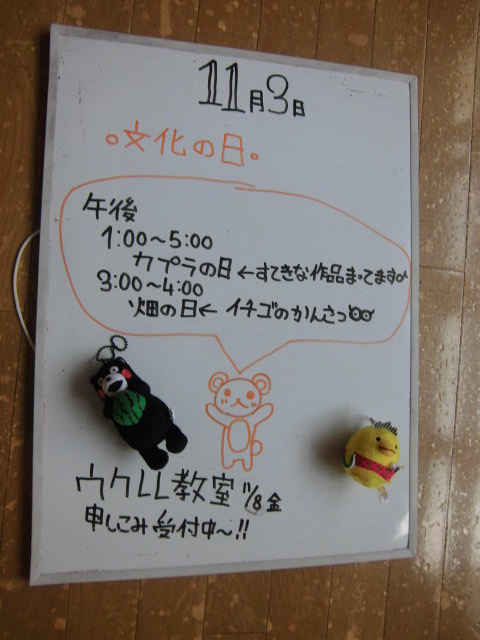 11月3日
。文化の日。
午後
1:00〜5:00
カプラの日←すてきな作品まってます♪
3:00〜4:00
畑の日←イチゴのかんさつ
ウクレレ教室 11/8金
申しこみ受付中〜!!